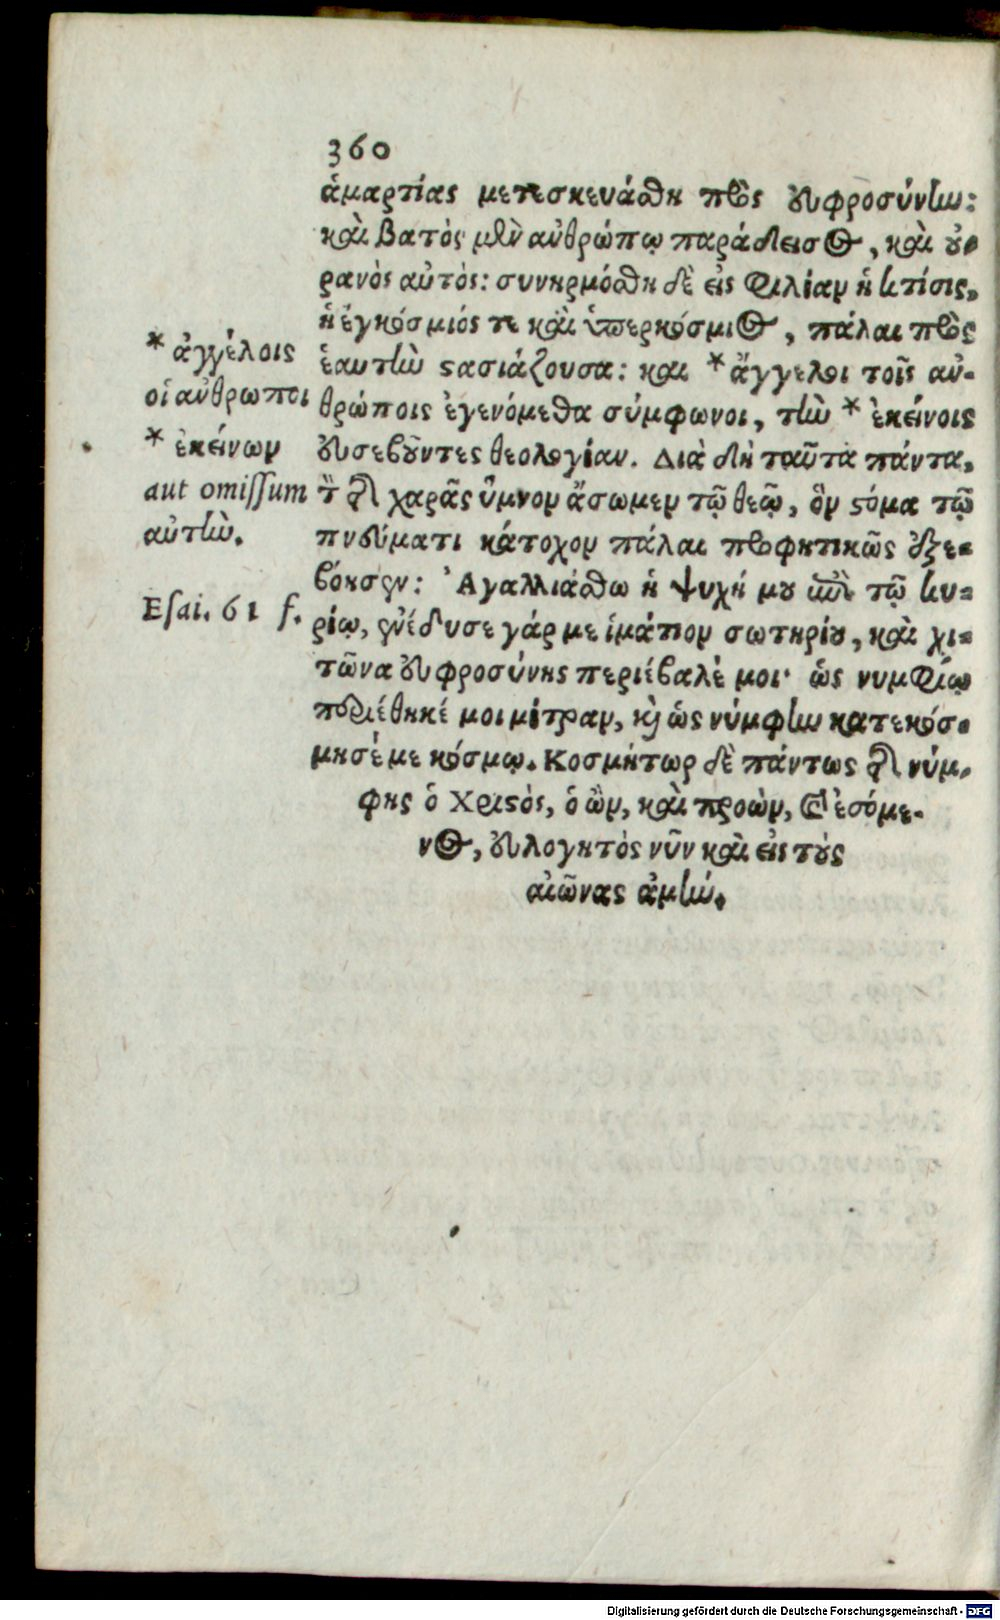 360
ἁμαρτίας μετεσκευάσθη πρὸς εὐφροσύνην:
καὶ βατὸς μὲν ἀνθρώπῳ παράδεισος, καὶ οὐ-
ρανὸς αὐτὸς: συνηρμόσθη δὲ εἰς φιλίαν ἡ κτίσις,
ἡ ἐγκόσμιός τε καὶ ὑπερκόσμιος, πάλαι πρὸς
ἑαυτὴν στασιάζουσα: και *ἄγγελοι τοῖς ἀν-
θρώποις ἐγενόμεθα σύμφωνοι, τὴν *ἐκείνοις
εὐσεβοῦντες θεολογίαν. Διὰ δὴ ταῦτα πάντα,
τ τῆς χαρᾶς ὕμνον ἄσωμεν τῷ θεῷ, ὃν στόμα τῷ
πνεύματι κάτοχον πάλαι προφητικῶς ἐξε-
βόησεν: Ἀγαλλιάσθω ἡ ψυχή μου ἐπὶ τῷ κυ-
ρίῳ, ἐνέδυσε γάρ με ἱμάτιον σωτηρίου, καὶ χι-
τῶνα εὐφροσύνης περιέβαλέ μοι· ὡς νυμφίῳ
περιέθηκέ μοι μίτραν, καὶ ὡς νύμφην κατεκόσ-
μησέ με κόσμῳ. Κοσμήτωρ δὲ πάντως τῆς νύμ-
φης ὁ Χριστὸς, ὁ ὢν, καὶ προὼν, καὶ ἐσόμε-
νος, εὐλογητὸς νῦν καὶ εἰς τοὺς
αἰῶνας ἀμήν.
* ἀγγέλοις
οἱ ἄνθρωποι
* ἐκείνων
aut omissum
αὐτὴν.
Esai. 61 f.
Digitalisierung gefördert durch die Deutsche Forschungsgemeinschaft - DFG